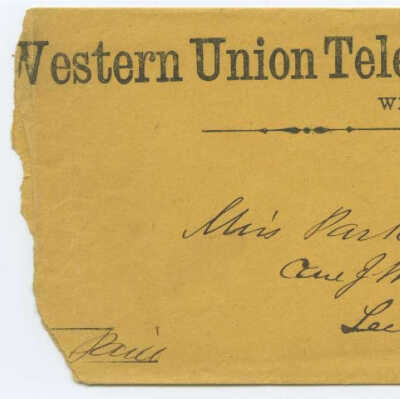 Western Union Tele
W
Miss Park
Care J
Lee
Paid